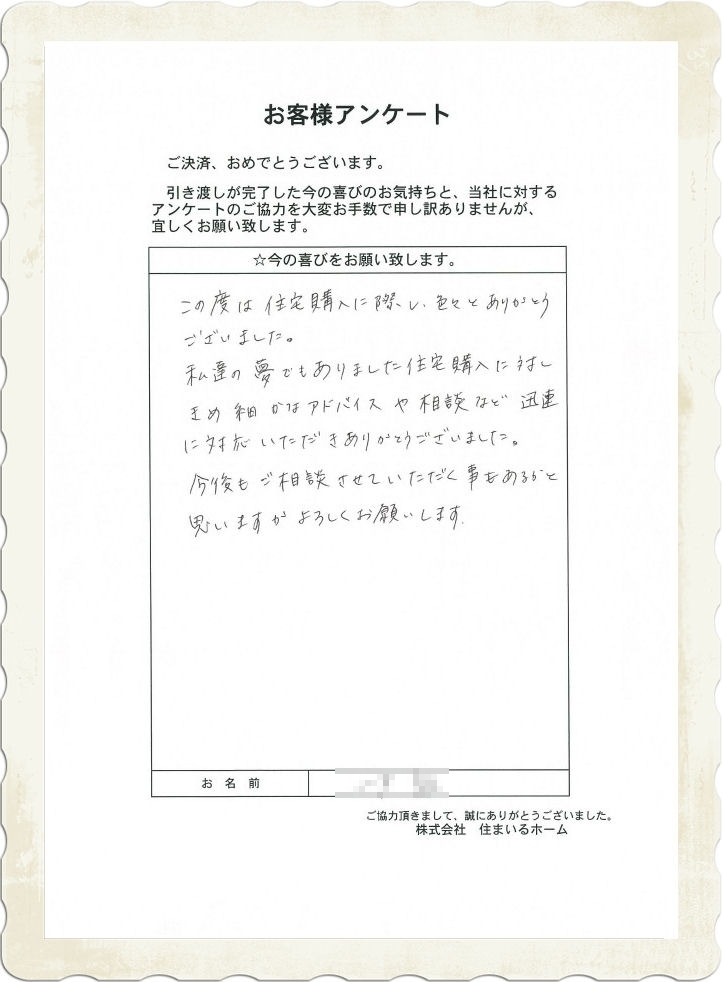 お客様アンケート
ご決済、おめでとうございます。
引き渡しが完了した今の喜びのお気持ちと、当社に対する
アンケートのご協力を大変お手数で申し訳ありませんが、
宜しくお願い致します。
☆今の喜びをお願い致します。
この度は住宅購入に際し、色々とありがとう
ございました。
私達の夢でもありました住宅購入に対し
きめ細かなアドバイスや相談など迅速
に対応いただきありがとうございました。
今後もご相談させていただく事もあるかと
思いますがよろしくお願いします.
お名前
ご協力頂きまして、誠にありがとうございました。
株式会社　住まいるホーム